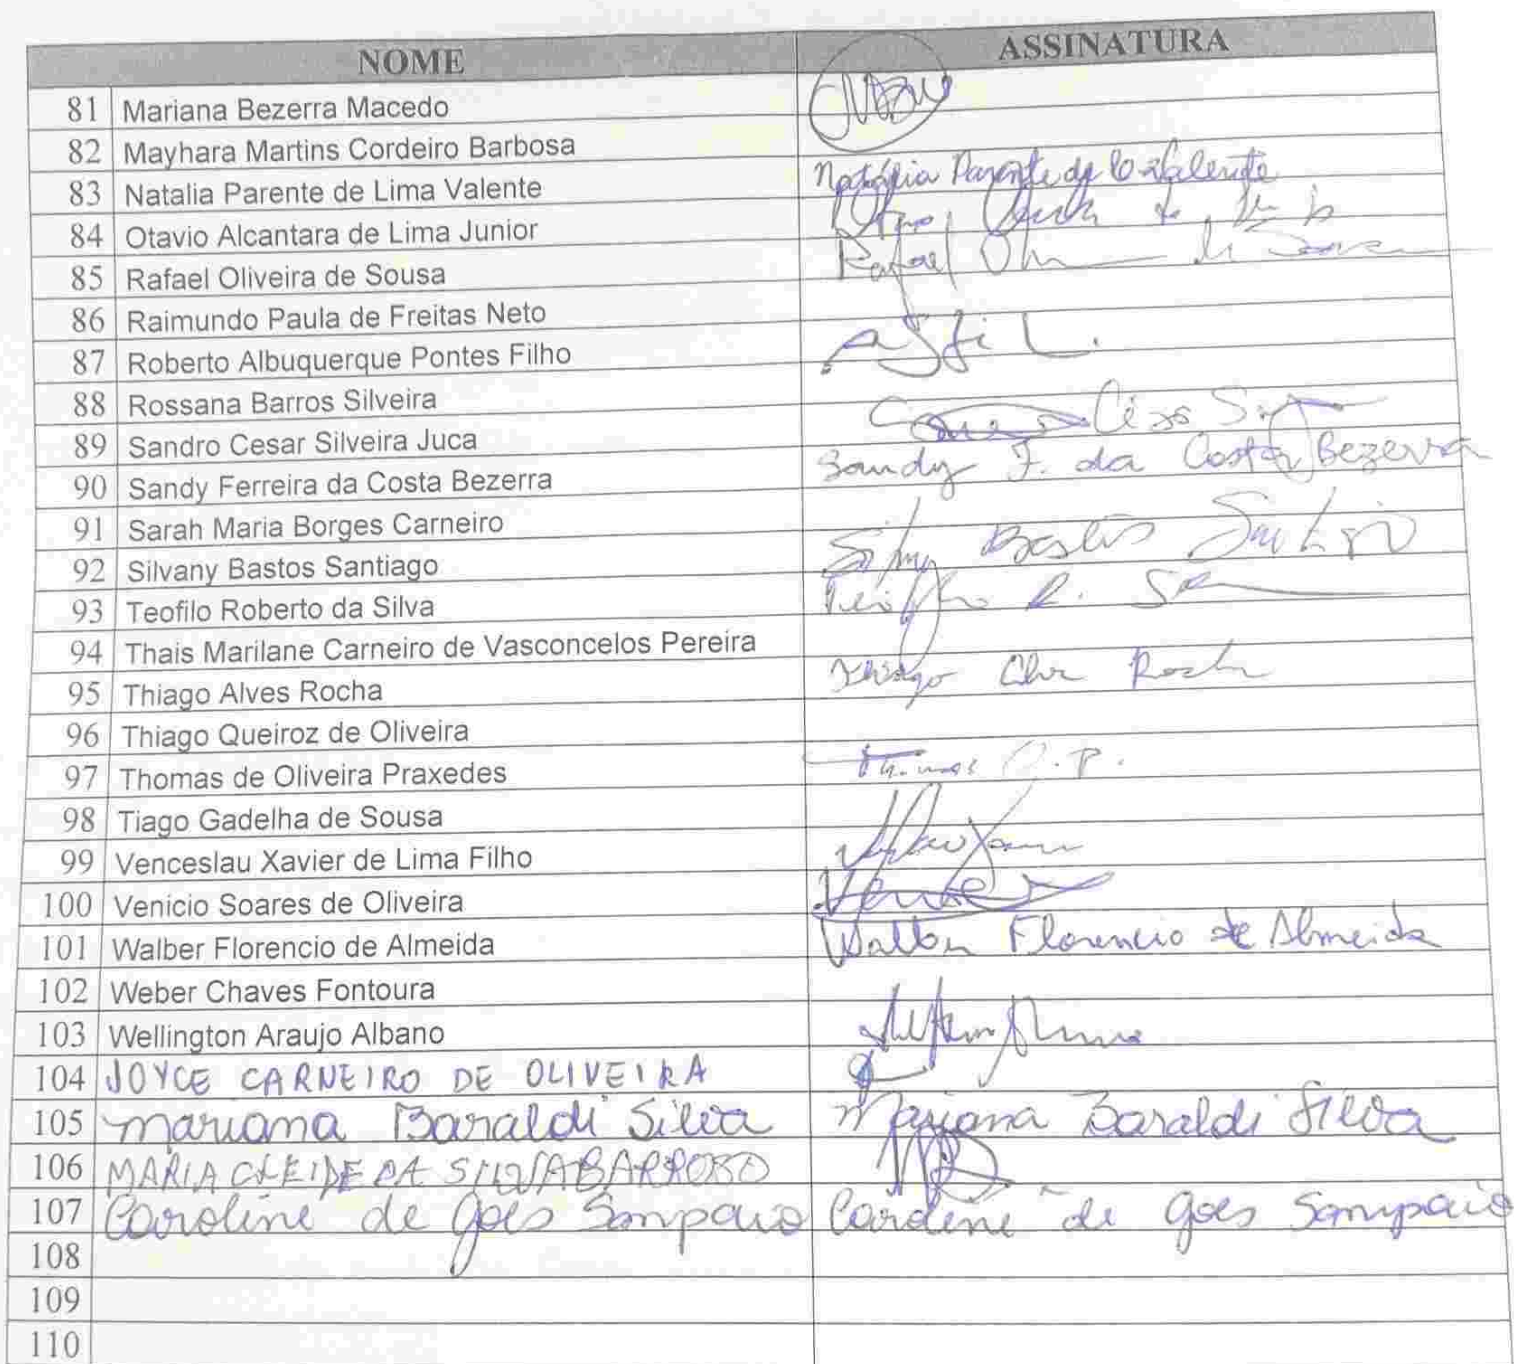 NOME ASSINATURA
81 Mariana Bezerra Macedo
82 Mayhara Martins Cordeiro Barbosa
83 Natalia Parente de Lima Valente Natália Parente de Valente
84 Otavio Alcantara de Lima Junior
85 Rafael Oliveira de Sousa Rafael
86 Raimundo Paula de Freitas Neto
87 Roberto Albuquerque Pontes Filho
88 Rossana Barros Silveira
89 Sandro Cesar Silveira Juca
90 Sandy Ferreira da Costa Bezerra Sandy F. da Costa Bezerra
91 Sarah Maria Borges Carneiro
92 Silvany Bastos Santiago Bastos
93 Teofilo Roberto da Silva
94 Thais Marilane Carneiro de Vasconcelos Pereira
95 Thiago Alves Rocha Thiago Rocha
96 Thiago Queiroz de Oliveira
97 Thomas de Oliveira Praxedes Thomas O. P.
98 Tiago Gadelha de Sousa
99 Venceslau Xavier de Lima Filho
100 Venicio Soares de Oliveira
101 Walber Florencio de Almeida Walber Florencio de Almeida
102 Weber Chaves Fontoura
103 Wellington Araujo Albano
104 JOYCE CARNEIRO DE OLIVEIRA
105 Mariana Baraldi Silva Mariana Baraldi Silva
106 MARIA CLEIDE DA SILVA BARROSO
107 Caroline de Goes Sampaio Caroline de Goes Sampaio
108
109
110